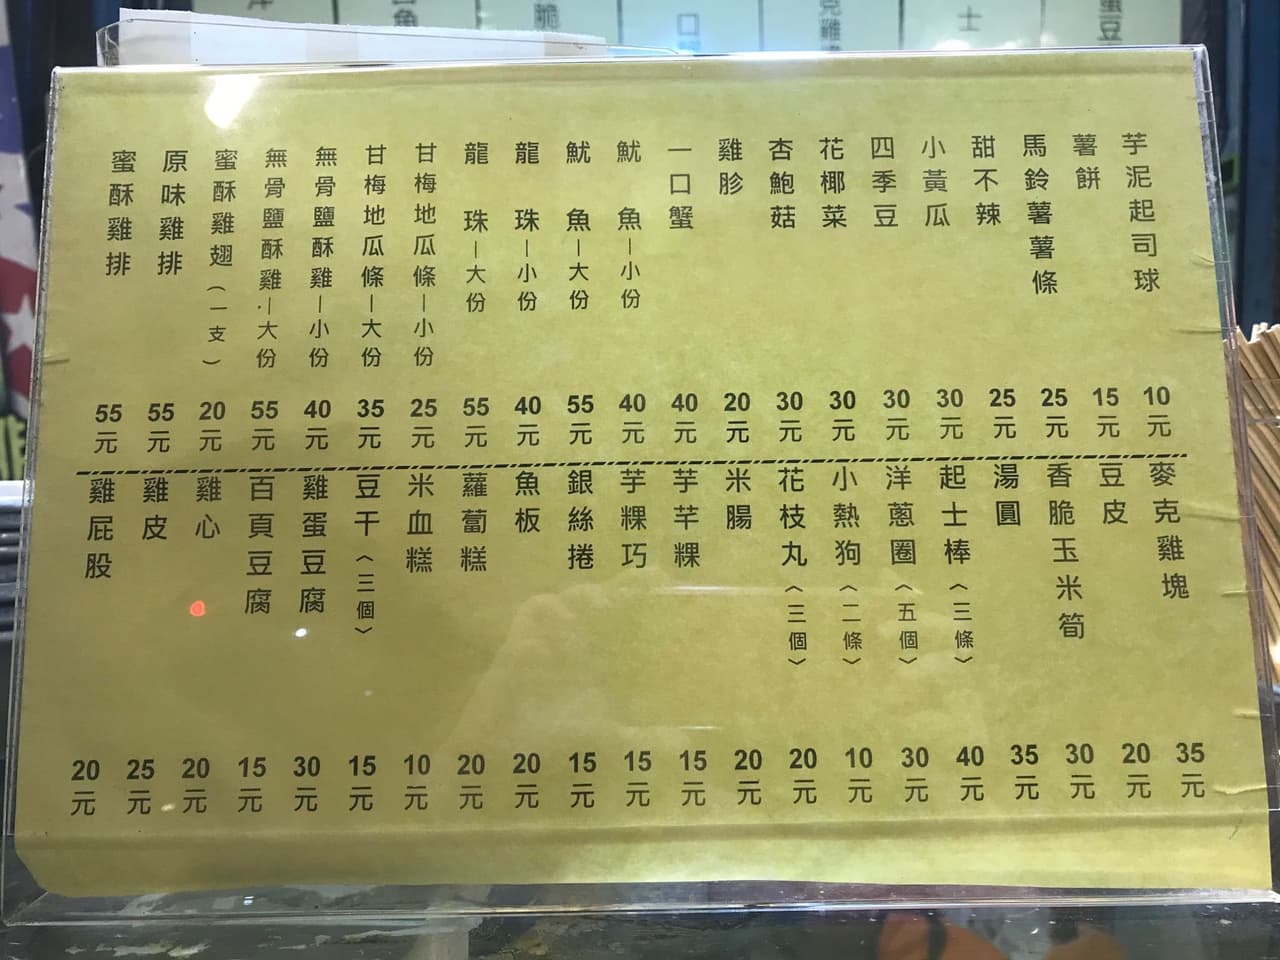 蜜酥雞排 55元
原味雞排 55元
蜜酥雞翅(一支) 20元
無骨鹽酥雞.—大份 55元
無骨鹽酥雞—小份 40元
甘梅地瓜條—大份 35元
甘梅地瓜條—小份 25元
龍珠—大份 55元
龍珠—小份 40元
魷魚—大份 55元
魷魚—小份 40元
一口蟹 40元
雞胗 20元
杏鮑菇 30元
花椰菜 30元
四季豆 30元
小黃瓜 30元
甜不辣 25元
馬鈴薯薯條 25元
薯餅 15元
芋泥起司球 10元
雞屁股 20元
雞皮 25元
雞心 20元
百頁豆腐 15元
雞蛋豆腐 30元
豆干〈三個〉 15元
米血糕 10元
蘿蔔糕 20元
魚板 20元
銀絲捲 15元
芋粿巧 15元
芋芋粿 15元
米腸 20元
花枝丸〈三個〉 20元
小熱狗〈二條〉 10元
洋蔥圈〈五個〉 30元
起士棒〈三條〉 40元
湯圓 35元
香脆玉米筍 30元
豆皮 20元
麥克雞塊 35元